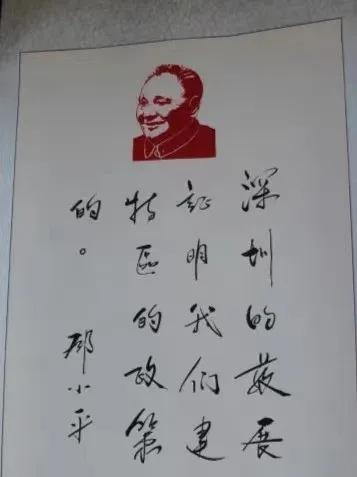 深圳的發展
証明我们建
特區的政策
的。
邓小平